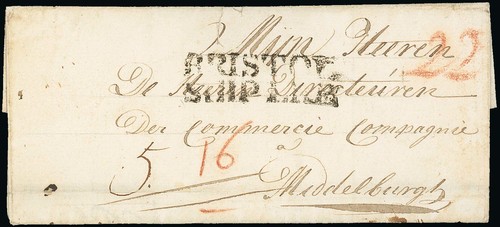 Mijn Heeren
22
BRISTOL
SHIP LRE
De Heeren Directeuren
Der Commercie Compagnie
à
5. 16
Middelburgh